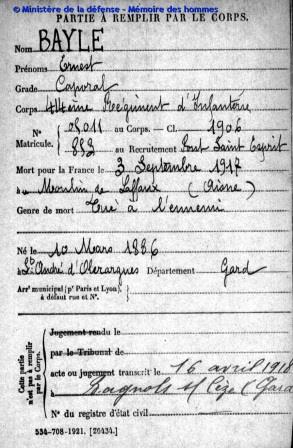 © Ministère de la défense - Mémoire des hommes
PARTIE À REMPLIR PAR LE CORPS.
Nom BAYLE
Prénoms Ernest
Grade Caporal
Corps 44ème Régiment d'Infanterie
N° 05011 au Corps. — Cl. 1906
Matricule. 883 au Recrutement Pont Saint Esprit
Mort pour la France le 3 Septembre 1917
à Moulin de Laffaux (Aisne)
Genre de mort Tué à l'ennemi
Né le 10 Mars 1886
à St André d'Olerargues Département Gard
Arrt municipal (pr Paris et Lyon),
à défaut rue et N°.
Cette partie n'est pas à remplir par le Corps.
Jugement rendu le
par le Tribunal de
acte ou jugement transcrit le 16 avril 1918
à Bagnols s/ Cèze (Gard
N° du registre d'état civil
534-708-1921. [26434.]